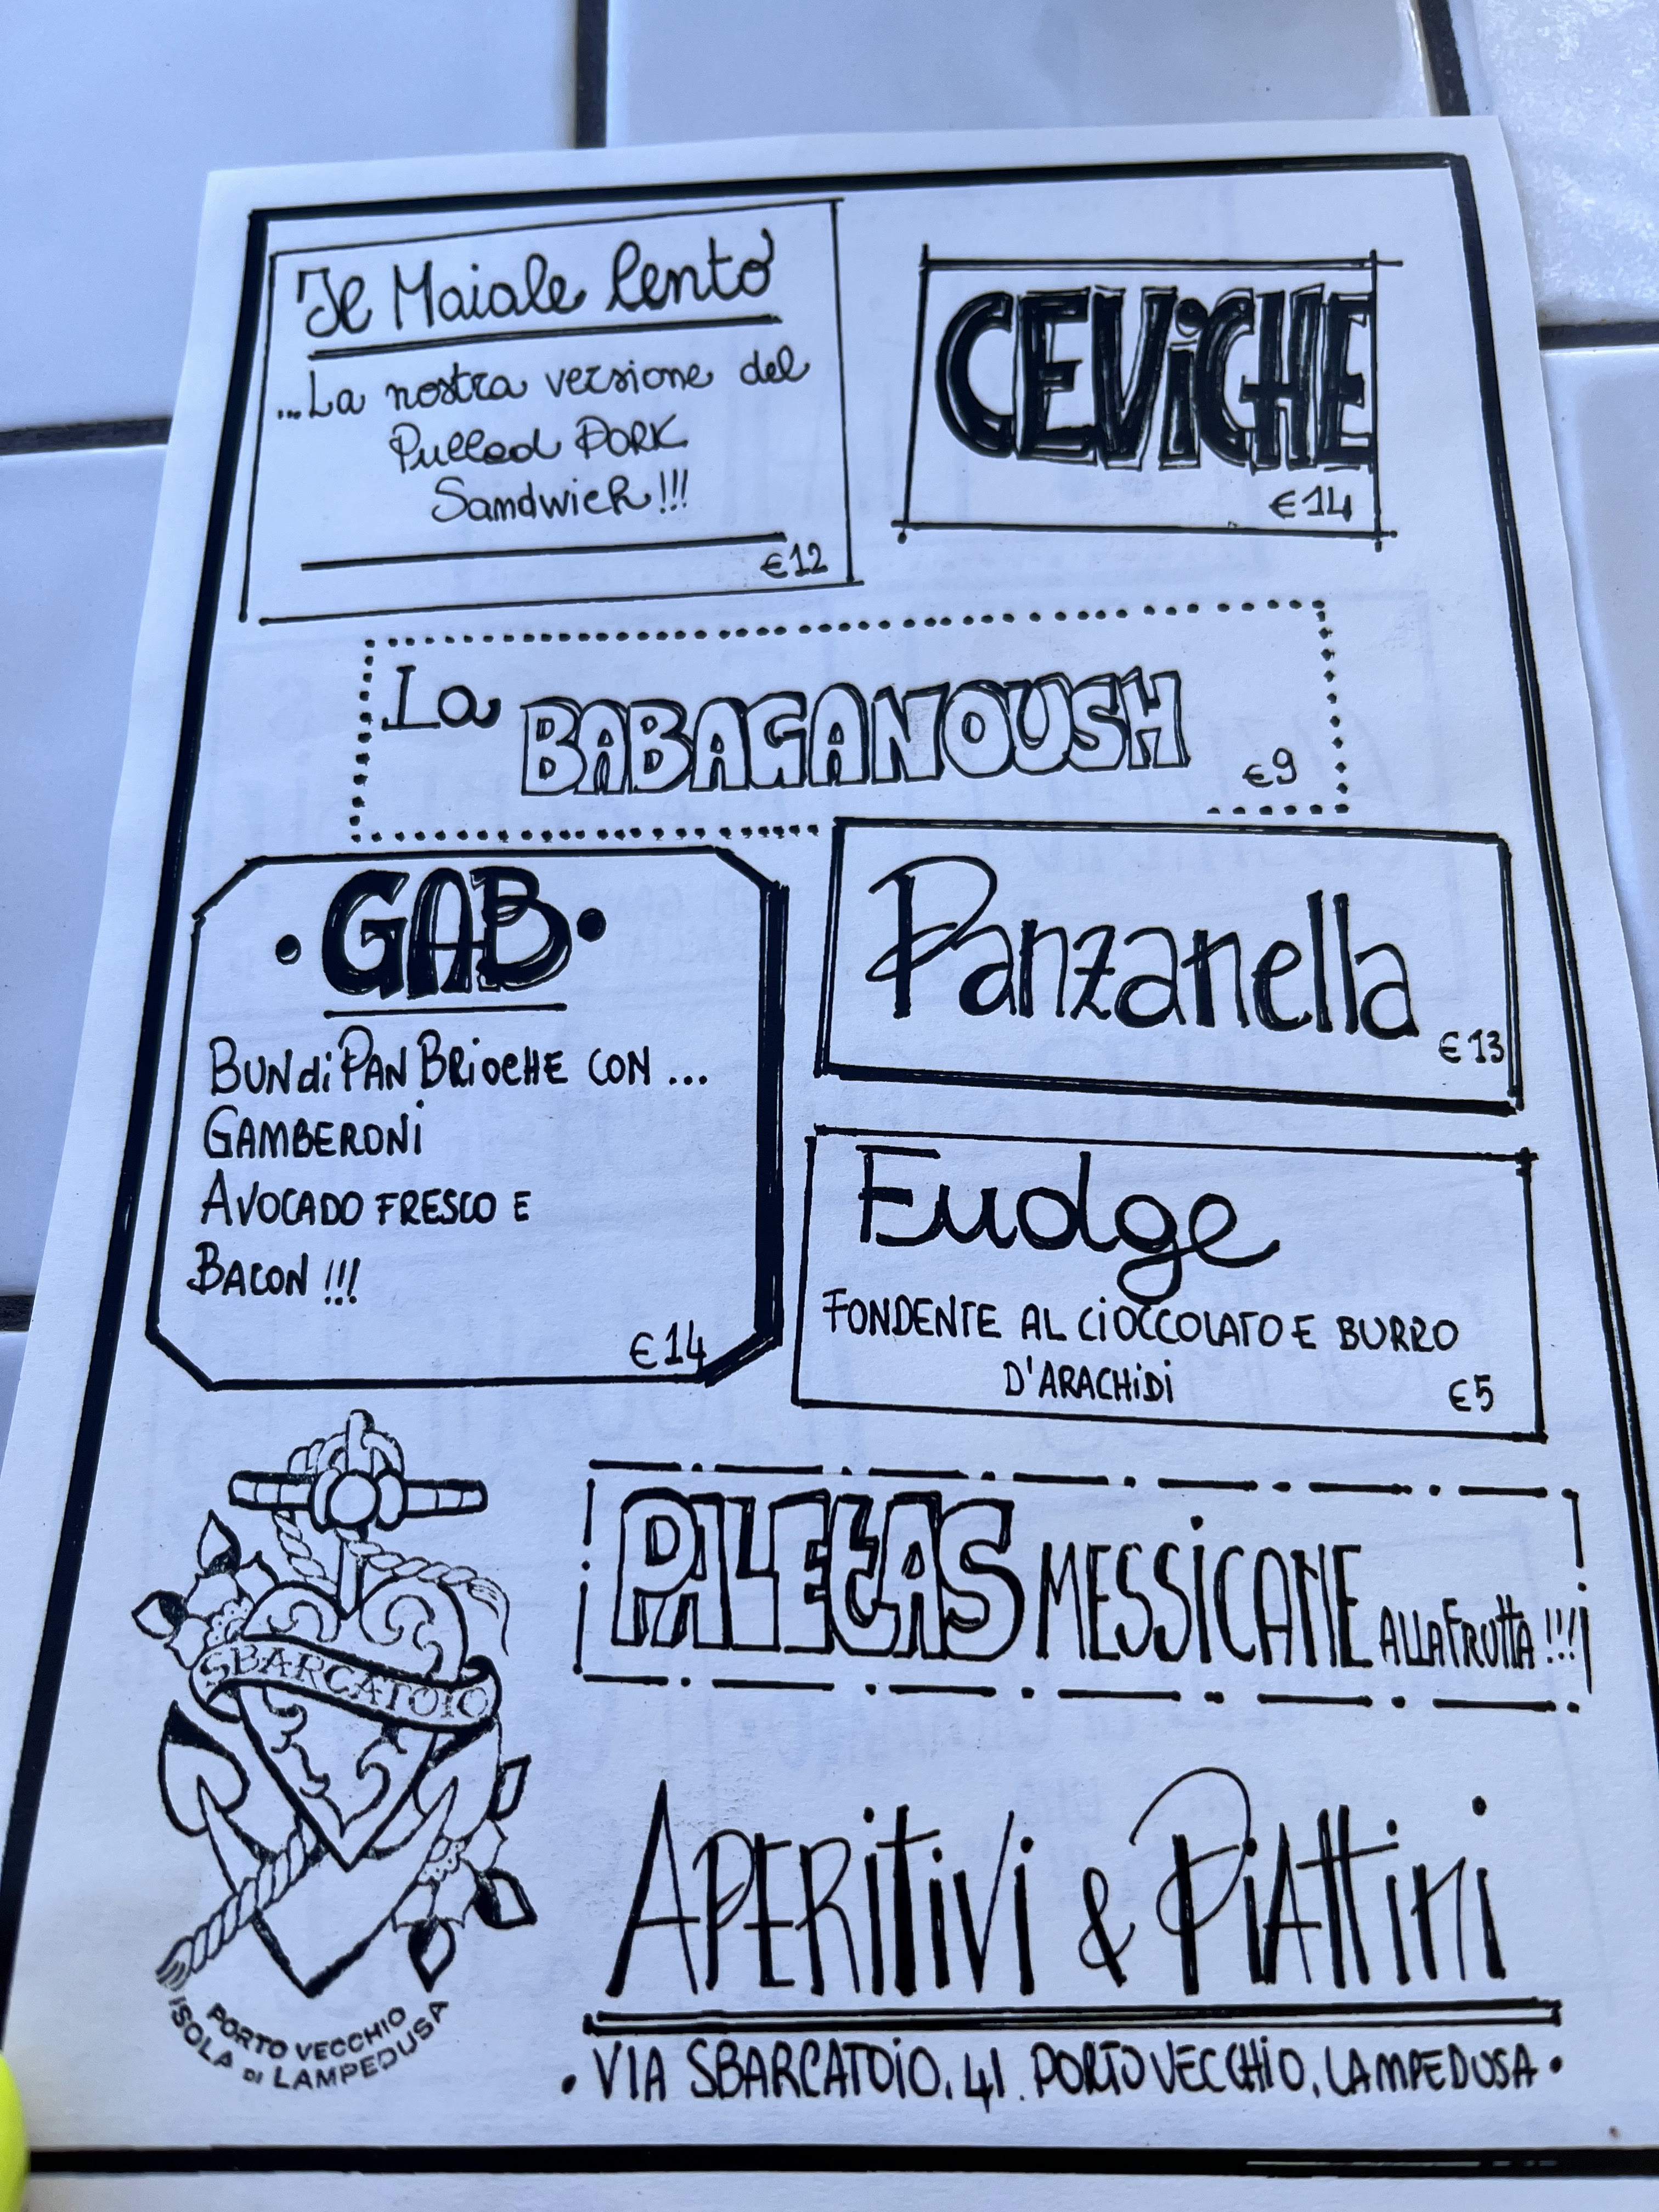 Il Maiale lento
...La nostra versione del
Pulled PORK
Sandwich!!!
€12
CEViCHE
€14
La BABAGANOUSH
€9
•GAB•
BUN di PAN BRiOCHE CON ...
GAMBERONi
AVOCADO FRESCO E
BACON !!!
€14
Panzanella
€13
Fudge
FONDENTE AL CiOCCOLATO E BURRO
D'ARACHiDi
€5
PALETAS MESSiCANE ALLA FRUTTA !!!
SBARCATOIO
PORTO VECCHIO
ISOLA DI LAMPEDUSA
APERiTiVi & PiATTiNi
• VIA SBARCATOiO, 41. PORTO VECCHIO, LAMPEDUSA •